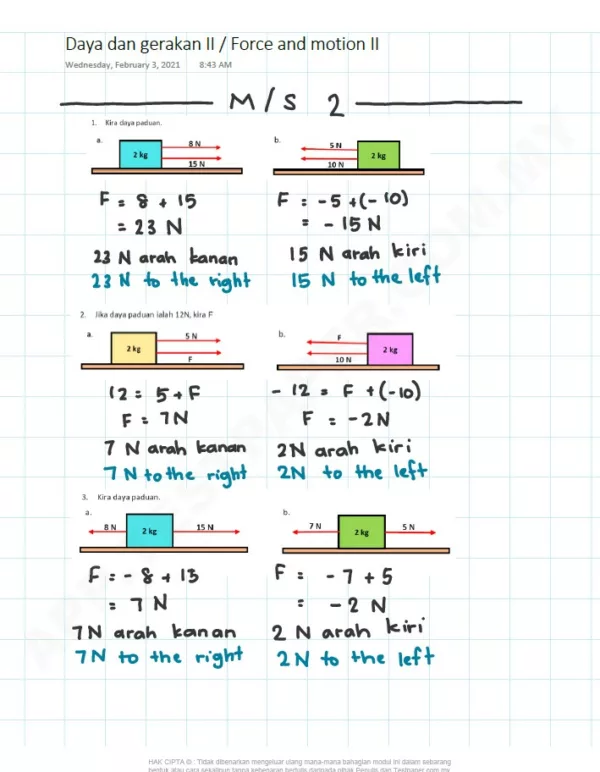 Daya dan gerakan II / Force and motion II
Wednesday, February 3, 2021 8:43 AM
M/S 2
1. Kira daya paduan.
a. 2 kg 8 N 15 N
b. 5 N 10 N 2 kg
F = 8 + 15
= 23 N
23 N arah kanan
23 N to the right
F = -5 + (-10)
= - 15 N
15 N arah kiri
15 N to the left
2. Jika daya paduan ialah 12N, kira F
a. 2 kg 5 N F
b. F 10 N 2 kg
12 = 5 + F
F = 7N
7 N arah kanan
7 N to the right
- 12 = F + (-10)
F = -2N
2N arah kiri
2N to the left
3. Kira daya paduan.
a. 8 N 2 kg 15 N
b. 7 N 2 kg 5 N
F = - 8 + 13
= 7 N
7N arah kanan
7N to the right
F = - 7 + 5
= - 2 N
2 N arah kiri
2N to the left
HAK CIPTA © : Tidak dibenarkan mengeluar ulang mana-mana bahagian modul ini dalam sebarang
bentuk atau cara sekalipun tanpa kebenaran bertulis daripada pihak Penulis dan Testpaper.com.my